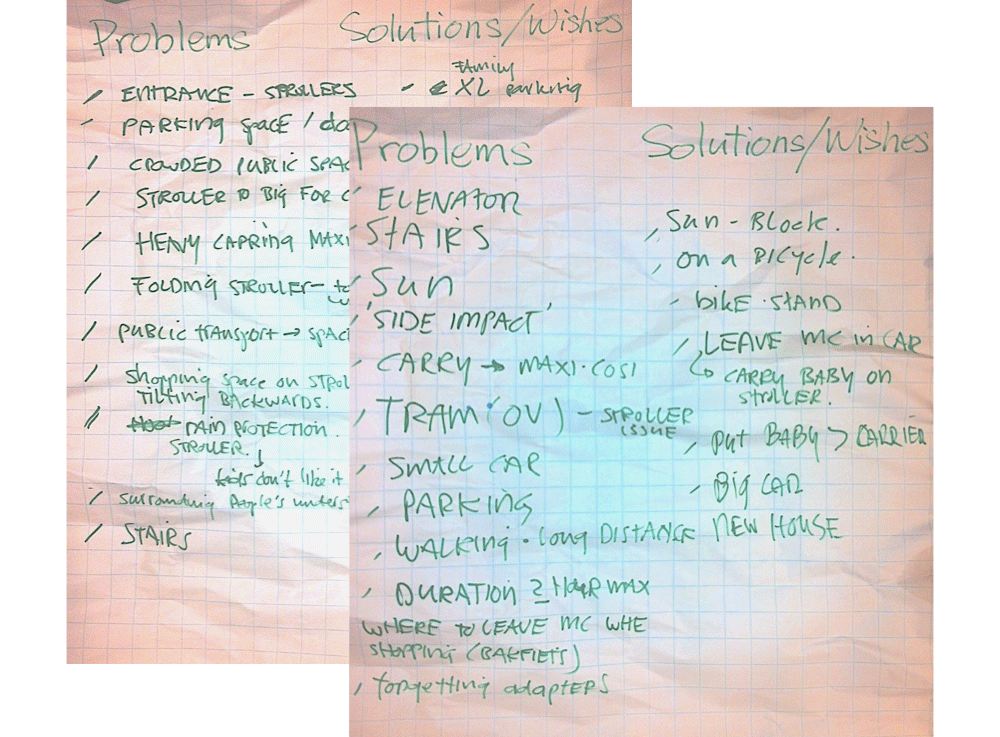 Problems
Solutions/Wishes
ENTRANCE - STROLLERS
Family
XL parking
PARKING space /
CROWDED PUBLIC SPAC
STROLLER TO BIG FOR
HEAVY CAPRING MAXI
FOLDING STROLLER-
PUBLIC transport → SPACI
Shopping space on STROL
TILTING BACKWARDS.
RAIN PROTECTION.
STROLLER.
kids don't like it
surrounding People's unders
STAIRS
Problems
Solutions/Wishes
ELENATOR
STAIRS
Sun
'SIDE IMPACT'
CARRY → MAXI·COSI
TRAM (OV) - STROLLER
ISSUE
SMALL CAR
PARKING
WALKING · long DISTANCE
DURATION 2 HOUR MAX
WHERE to LEAVE MC WHE
shopping (BAKFIETS)
forgetting adapters
Sun - Block.
on a BICycle.
bike·STAND
LEAVE MC in CAR
CARRY BABY on
stroller.
put BABY > CARRIER
Big CAR
NEW HOUSE